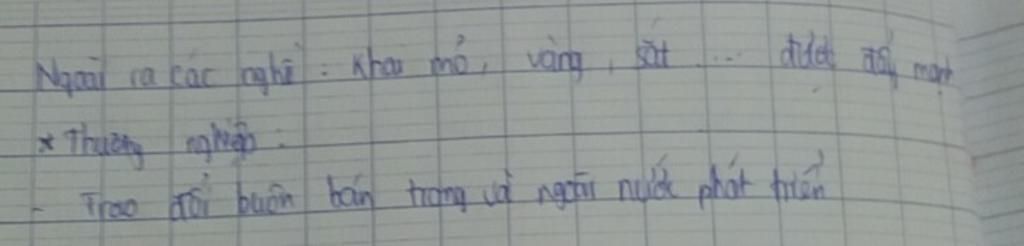 Ngoài ra các nghề : Khai mỏ, vàng, sắt ... được đẩy mạnh
* Thương nghiệp :
- Trao đổi buôn bán trong và ngoài nước phát triển